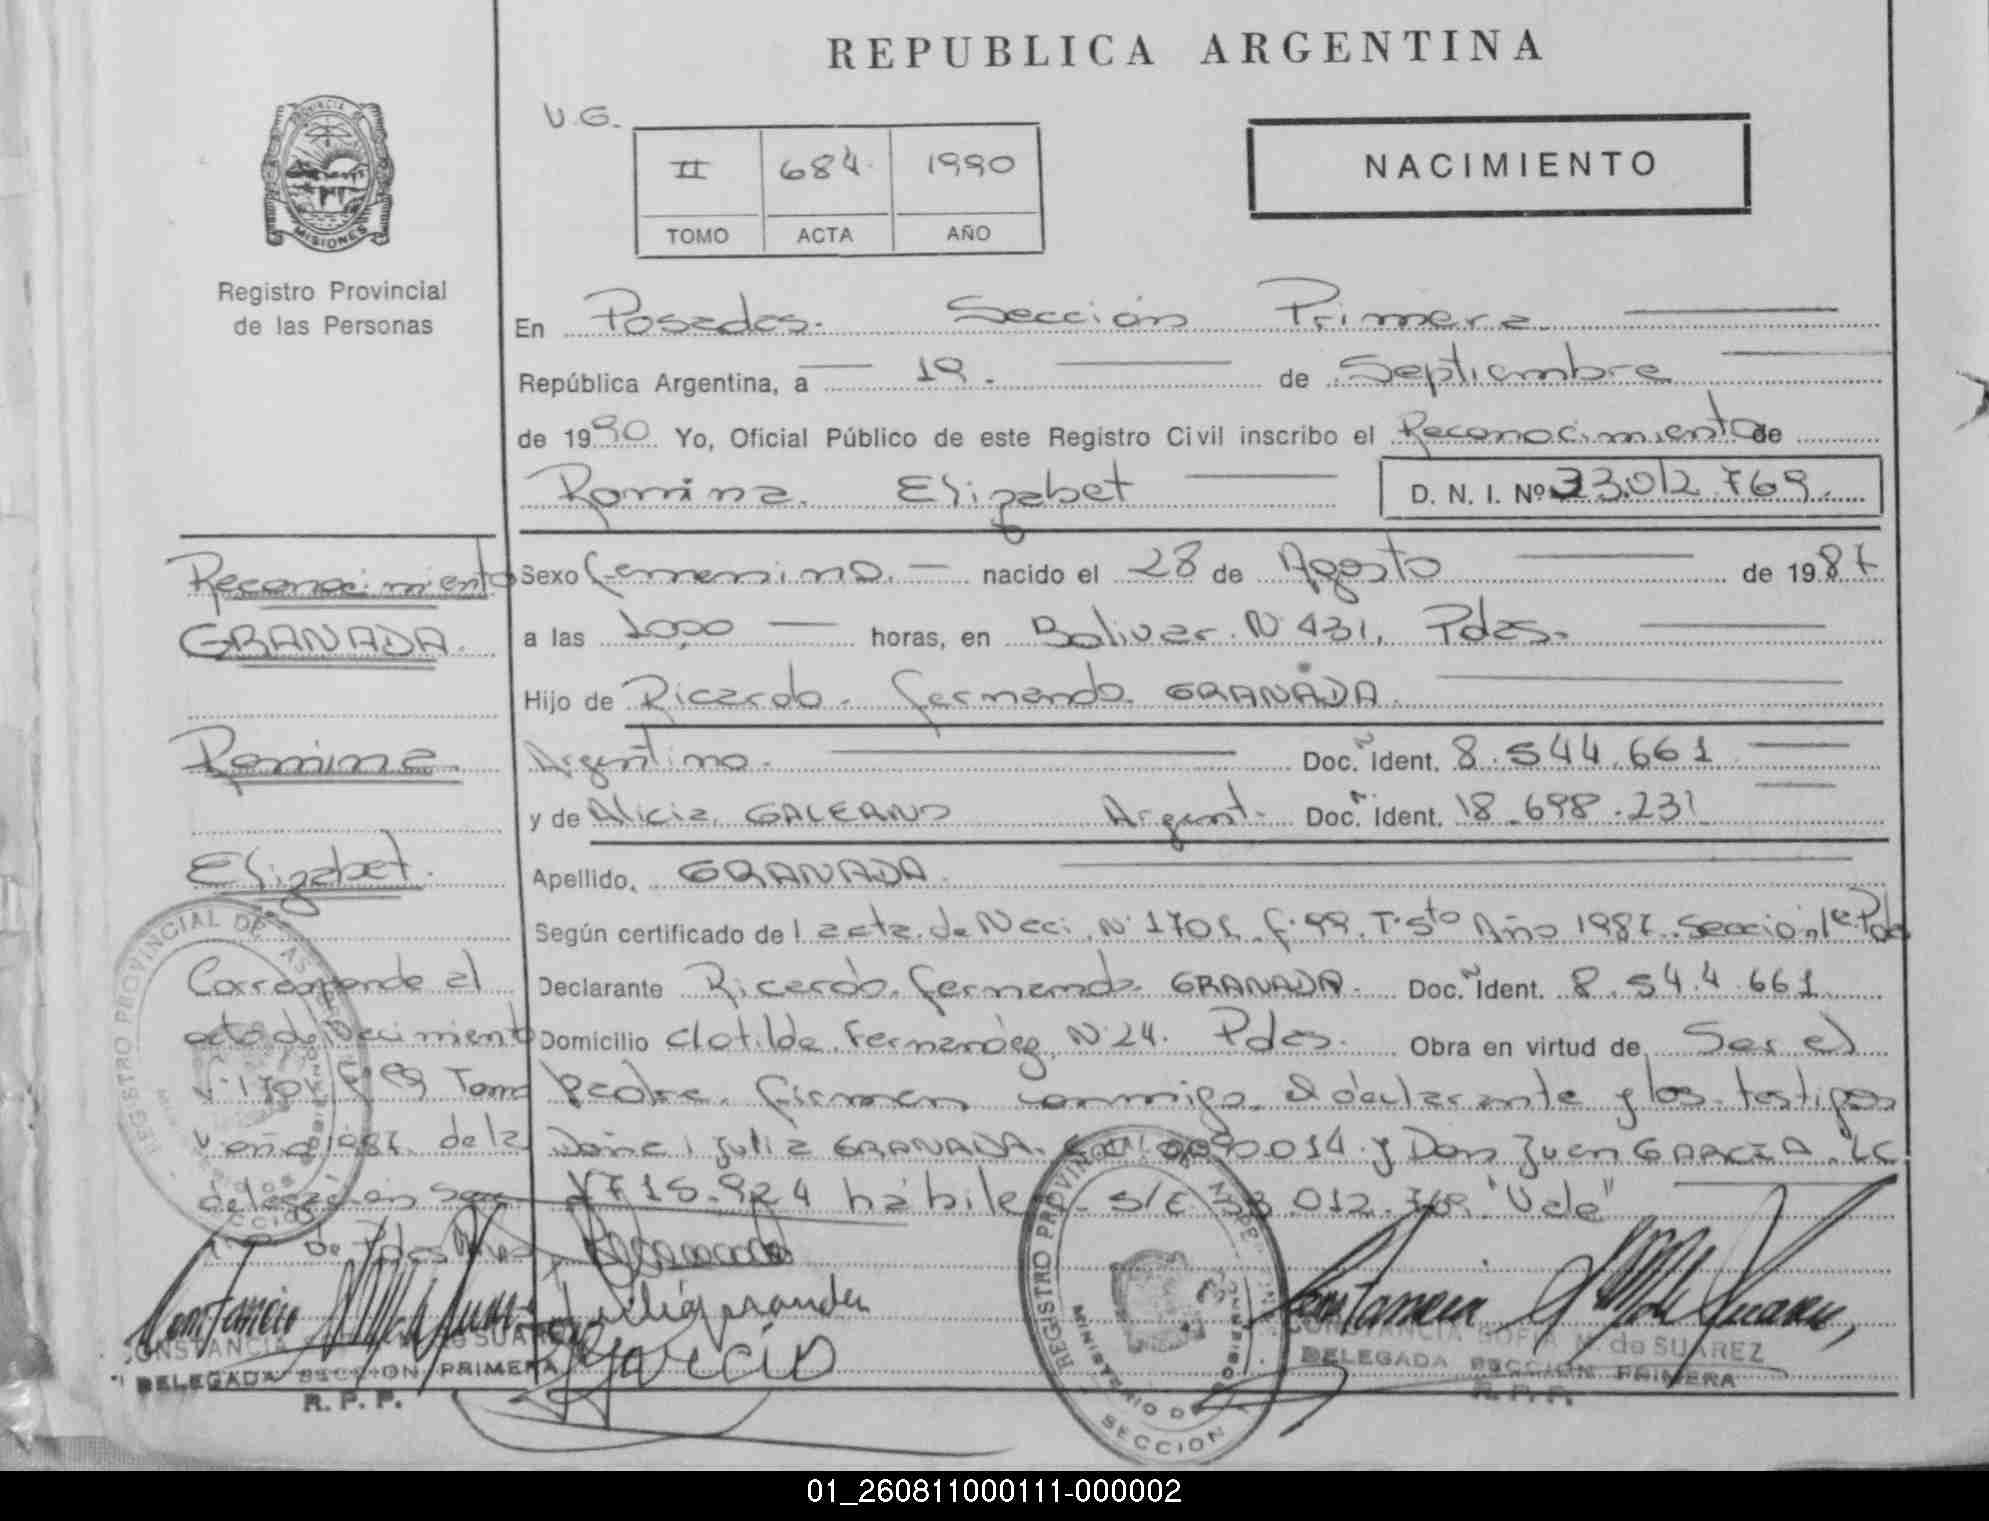 REPUBLICA ARGENTINA
V.G.
II 684 1990
TOMO ACTA AÑO
NACIMIENTO
PROVINCIA DE MISIONES
Registro Provincial
de las Personas
En Posadas. Sección Primera
República Argentina, a 19. de Septiembre
de 1990 Yo, Oficial Público de este Registro Civil inscribo el Reconocimiento de
Romina Elizabet D. N. I. Nº 33.012.769
Reconocimiento
GRANADA.
Romina
Elizabet.
Corresponde al
acta de Nacimiento
Nº 1701 Fº 99 Tomo
V año 1987 de la
delegación
de Pdas Mnes
Sexo femenino. nacido el 28 de Agosto de 1987
a las 10,00 horas, en Bolivar N 431, Pdas.
Hijo de Ricardo Fernando GRANADA.
Argentino. Doc. Ident. 8.544.661
y de Alicia GALEANO Argent. Doc. Ident. 18.698.231
Apellido, GRANADA.
Según certificado de acta de Naci. Nº 1701 f. 99 T. 5to Año 1987 Sección 1ª Pdas
Declarante Ricardo Fernando GRANADA. Doc. Ident. 8.544.661
Domicilio Clotilde Fernandez Nº 24. Pdas. Obra en virtud de Ser el
Padre. firman conmigo el declarante y los testigos
Doña Julia GRANADA. y Don Juan GARCIA. LC
715.924 hábiles. S/E 33.012.769 "Vale"
Julia granada
Garcia
REGISTRO PROVINCIAL DE LAS PERSONAS
REGISTRO PROVINCIAL DE LAS PERSONAS
MINISTERIO DE GOBIERNO
SECCION
CONSTANCIA SOFIA M. de SUAREZ
DELEGADA SECCION PRIMERA
R. P. P.
CONSTANCIA SOFIA M. de SUAREZ
DELEGADA SECCION PRIMERA
R. P. P.
01_260811000111-000002